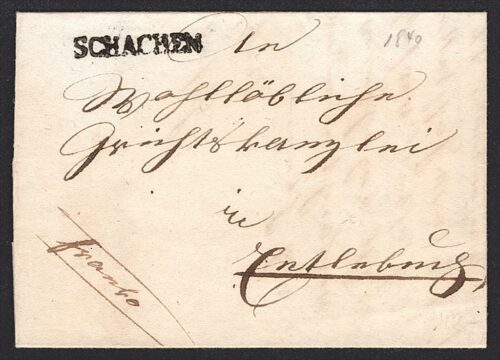 SCHACHEN
An
1840
Wohllöbliche
Grichtskanzlei
in
Entlebuch
franko